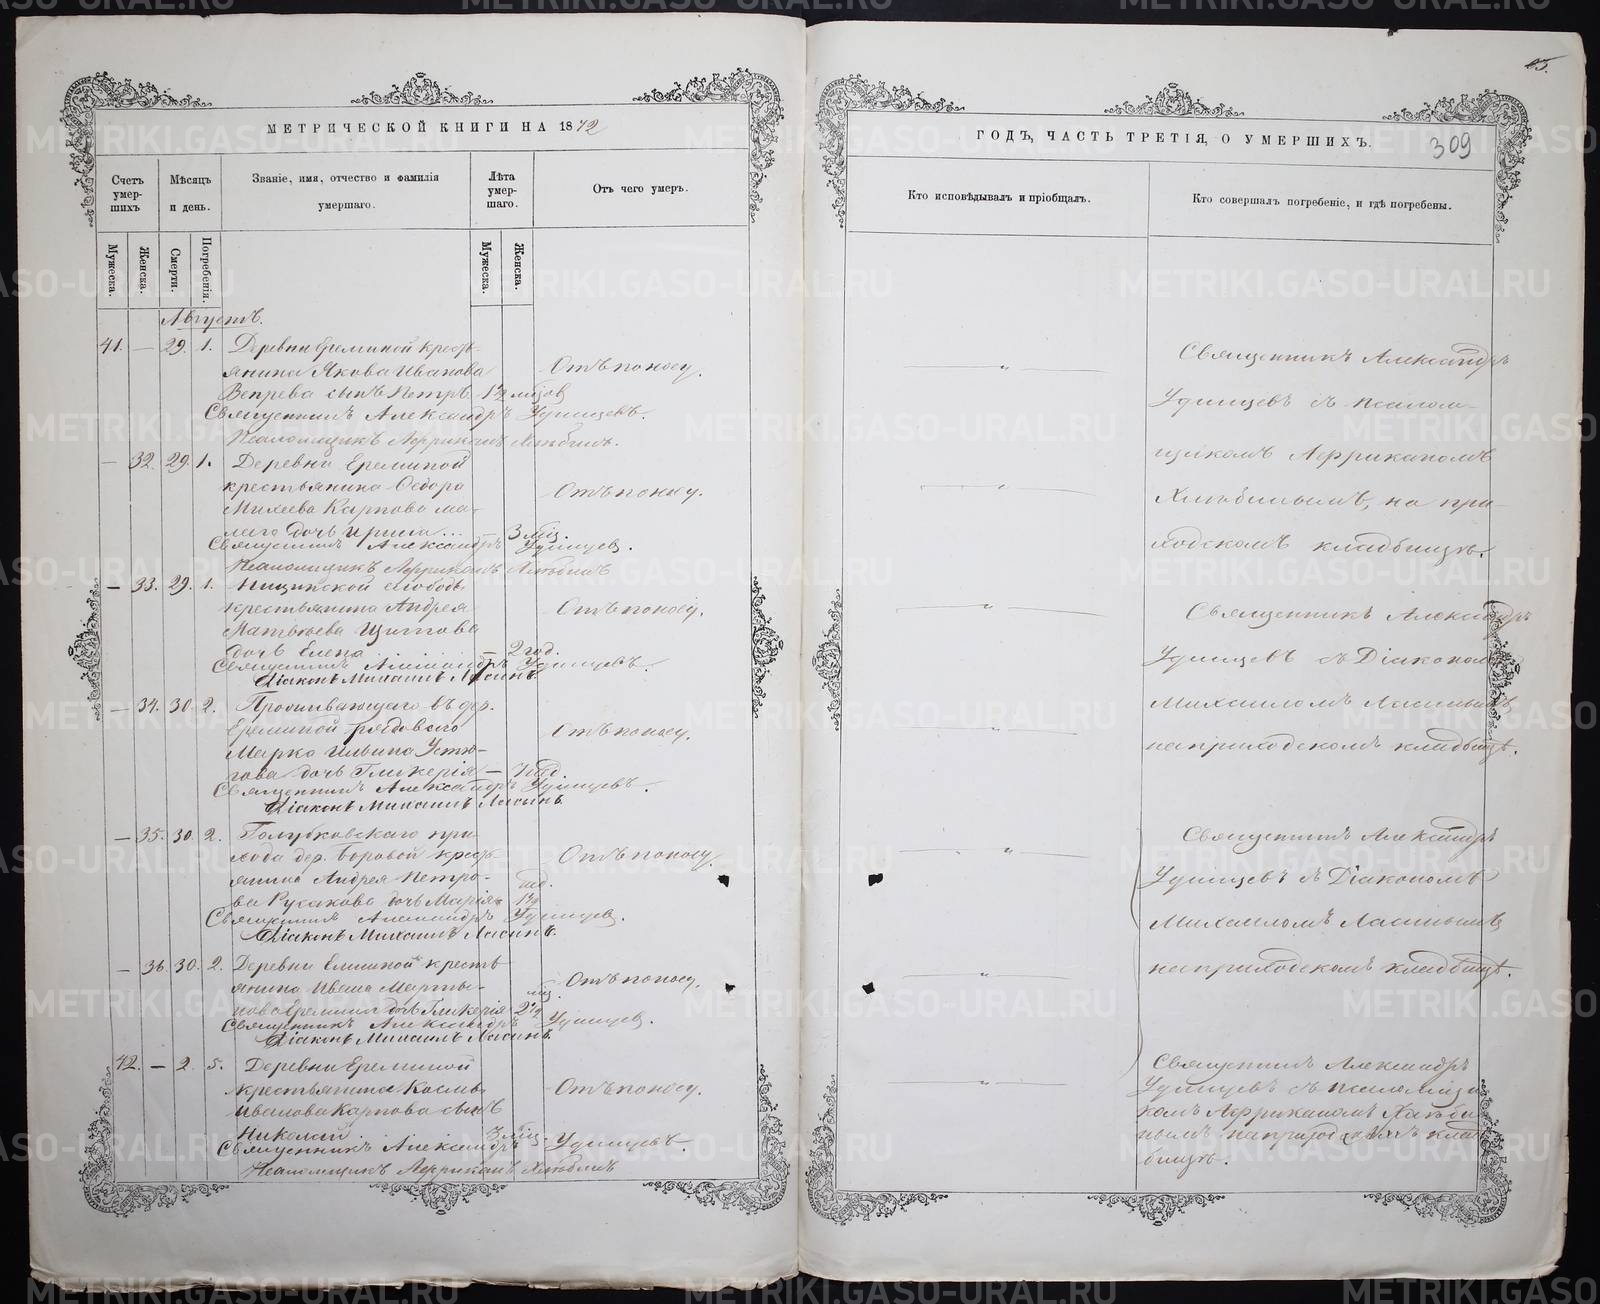 МЕТРИЧЕСКОЙ КНИГИ НА 1872
Счетъ умер-шихъ
Мѣсяцъ и день.
Званіе, имя, отчество и фамилія умершаго.
Лѣта умер-шаго.
Отъ чего умеръ.
Мужеска.
Женска.
Смерти.
Погребенія.
Мужеска.
Женска.
Августъ.
41. — 29. 1. Деревни Ереминой кресть-
янина Якова Иванова Отъ поносу.
Вепрева сынъ Петръ 1½ мѣсяц
Священникъ Александръ Удинцевъ.
Псаломщикъ Аффриканъ Хлѣбинъ.
— 32. 29. 1. Деревни Ереминой
крестьянина Ѳедора Отъ поносу.
Михеева Карпова ма-
лаго дочь Ирина... — 3 мѣс.
Священникъ Александръ Удинцев.
Псаломщикъ Аффриканъ Хлѣбинъ
— 33. 29. 1. Ницинской слободы
крестьянина Андрея Отъ поносу.
Матвѣева Щитова
дочь Елена — 2 год.
Священникъ Александръ Удинцевъ.
Діаконъ Михаилъ Ласинъ.
— 34. 30. 2. Проживающаго въ дер.
Ереминой рядоваго Отъ поносу.
Марка Ильина Устю-
гова дочь Гликерія — 1 год.
Священникъ Александръ Удинцевъ.
Діаконъ Михаилъ Ласинъ
— 35. 30. 2. Голубковскаго при-
хода дер. Боровой кресть- Отъ поносу.
янина Андрея Петро- год.
ва Русакова дочь Марія 1½
Священникъ Александръ Удинцев.
Діаконъ Михаилъ Ласинъ.
— 36. 30. 2. Деревни Ереминой кресть
янина Ивана Марты- мѣс. Отъ поносу.
нова Еремина дочь Гликерія 2½
Священникъ Александръ Удинцев.
Діаконъ Михаилъ Ласинъ.
42. — 2. 5. Деревни Ереминой
крестьянина Косьмы Отъ поносу.
Иванова Карпова сынъ
Николай 3 мѣс.
Священникъ Александръ Удинцевъ.
Псаломщикъ Аффриканъ Хлѣбинъ
ГОДЪ, ЧАСТЬ ТРЕТІЯ, О УМЕРШИХЪ.
309
Кто исповѣдывалъ и пріобщалъ.
Кто совершалъ погребеніе, и гдѣ погребены.
Священникъ Александръ
Удинцевъ съ псалом-
щикомъ Аффриканомъ
Хлѣбинымъ, на при-
ходскомъ кладбищѣ.
Священникъ Александръ
Удинцевъ съ Діакономъ
Михаиломъ Ласинымъ
на приходскомъ кладбищѣ.
Священникъ Александръ
Удинцевъ съ Діакономъ
Михаиломъ Ласинымъ
на приходскомъ кладбищѣ.
Священникъ Александръ
Удинцевъ съ псаломщи
комъ Аффриканомъ Хлѣби
нымъ, на приходскомъ клад
бищѣ.
METRIKI.GASO-URAL.RU